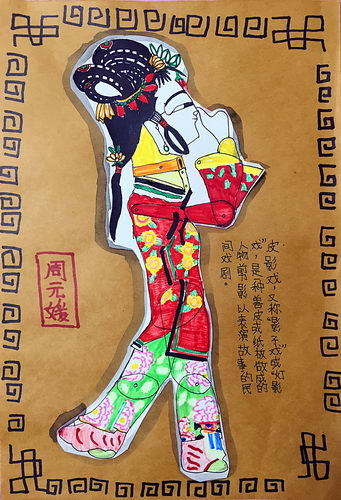 皮影戏，又称“影不戏”或“灯影
戏”，是一种兽皮或纸板做成的
人物剪影以表演故事的民
间戏剧。
周元媺